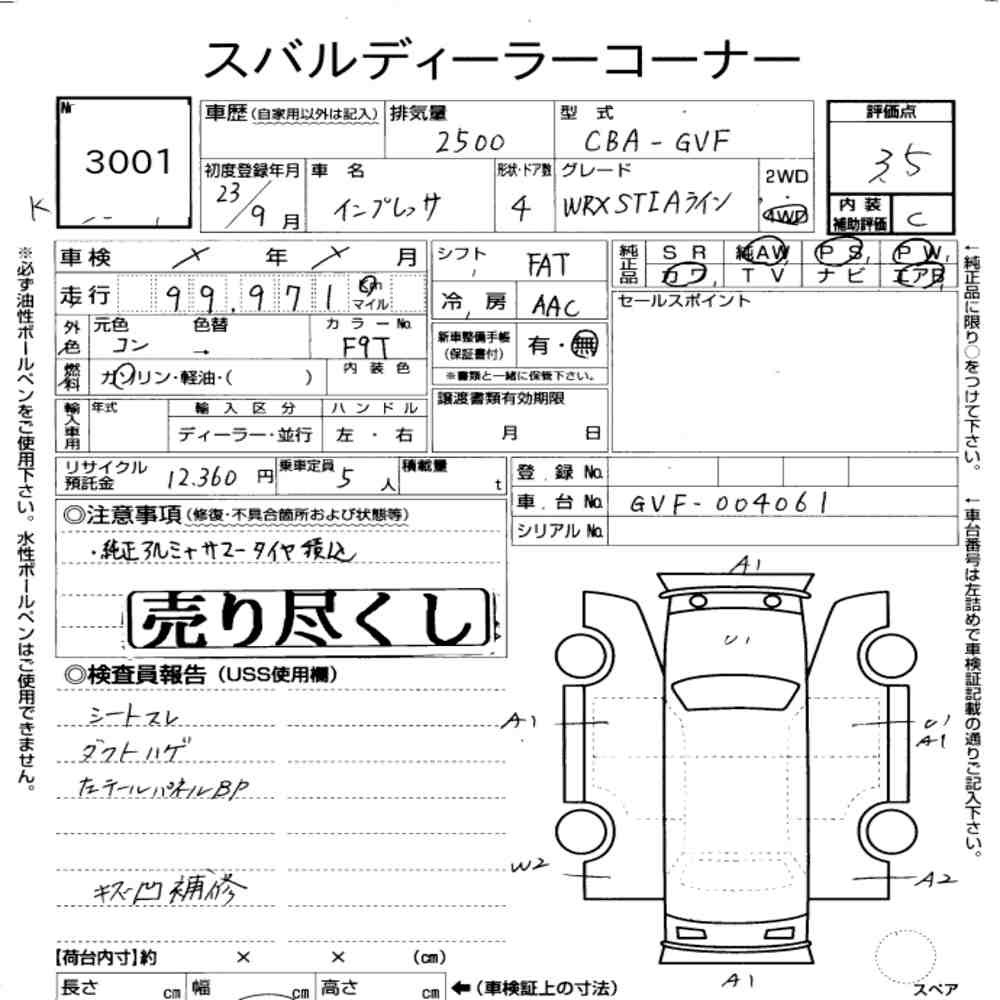 スバルディーラーコーナー
Nr 3001
K
車歴(自家用以外は記入) 排気量 2500 型式 CBA-GVF
評価点 35
内装補助評価 C
初度登録年月 23/9月 車名 インプレッサ 形状・ドア数 4 グレード WRX STI Aライン 2WD・4WD
車検 × 年 × 月
走行 99,971 Km マイル
外色 元色 コン 色替 → カラーNo. F9T
燃料 ガソリン・軽油・( ) 内装色
輸入車用 年式 輸入区分 ディーラー・並行 ハンドル 左・右
シフト FAT
冷房 AAC
新車整備手帳(保証書付) 有・無
※書類と一緒に保管下さい。
譲渡書類有効期限 月 日
純正品 SR 純AW PS PW
カワ TV ナビ エアB
セールスポイント
リサイクル預託金 12.360円 乗車定員 5人 積載量 t
登録No.
車台No. GVF-004061
シリアルNo.
◎注意事項(修復・不具合箇所および状態等)
・純正アルミ+サマータイヤ積込
売り尽くし
◎検査員報告(USS使用欄)
シートスレ
ダクトハゲ
左テールパネルBP
キズ凹補修
A1
U1
A1
U1
A1
W2
A2
A1
スペア
【荷台内寸】約 × × (cm)
長さ cm 幅 cm 高さ cm ←(車検証上の寸法)
※必ず油性ボールペンをご使用下さい。水性ボールペンはご使用できません。
←純正品に限り○をつけて下さい。
←車台番号は左詰めで車検証記載の通りご記入下さい。